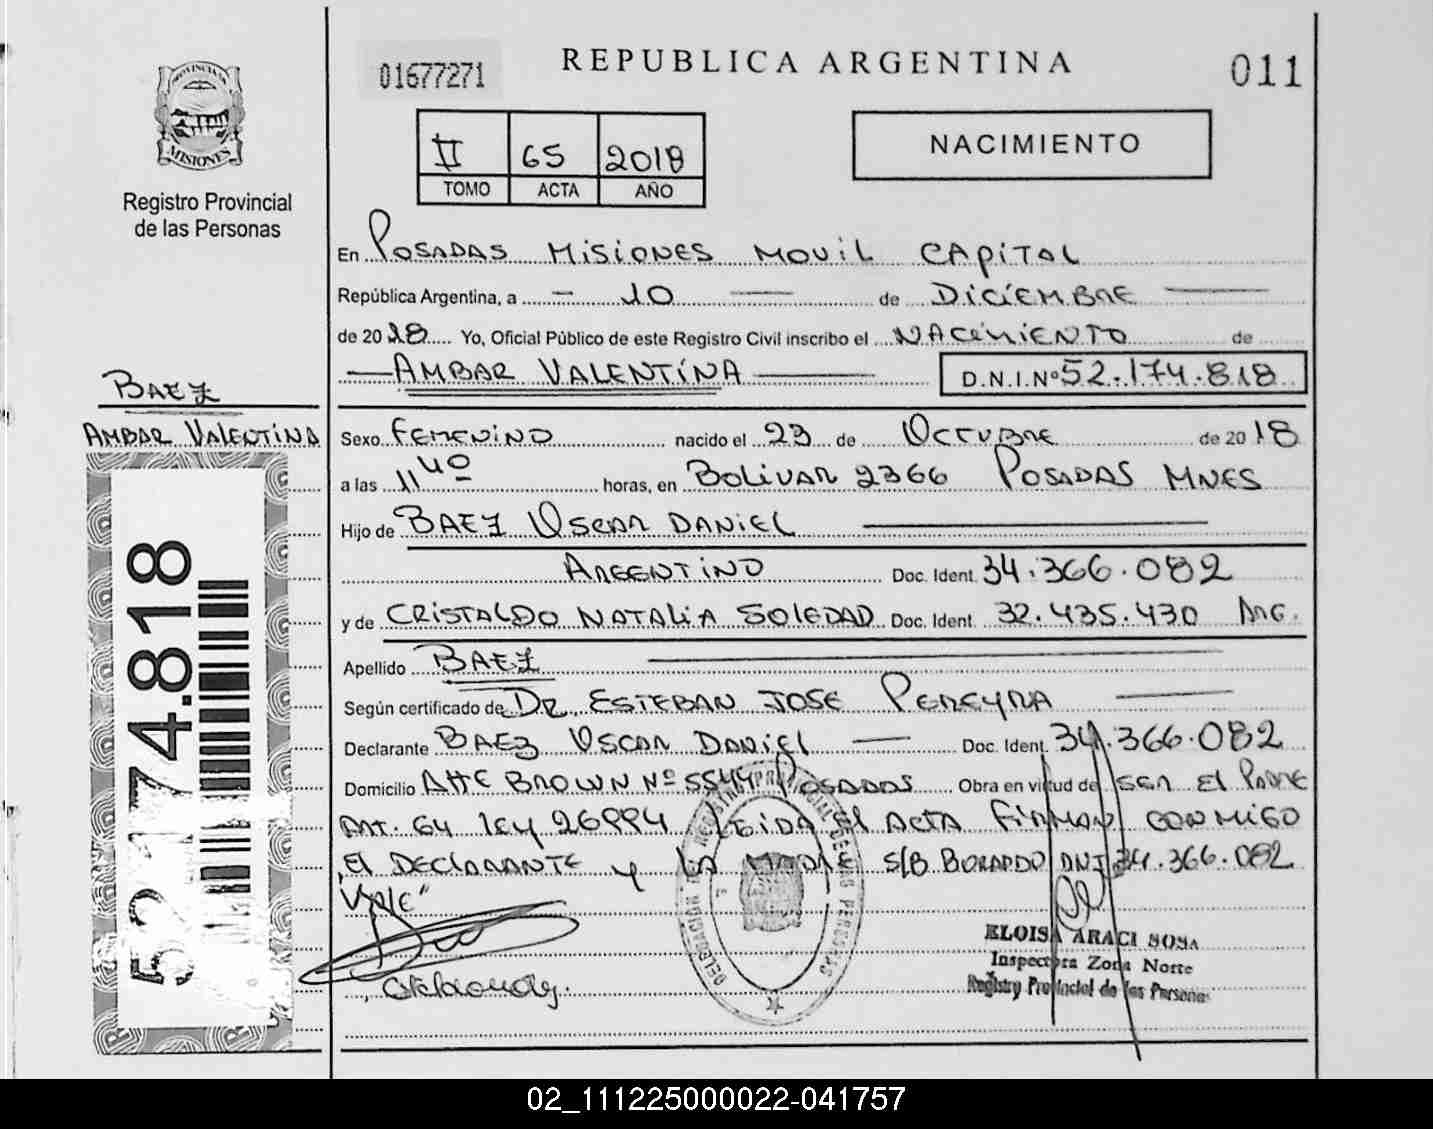 01677271
REPUBLICA ARGENTINA
011
PROVINCIA
MISIONES
Registro Provincial
de las Personas
II 65 2018
TOMO ACTA AÑO
NACIMIENTO
En Posadas Misiones Movil Capital
República Argentina, a 10 de Diciembre
de 2018 Yo, Oficial Público de este Registro Civil inscribo el Nacimiento de
Ambar Valentina D.N.I.Nº 52.174.818
Baez
Ambar Valentina
52.174.818
Sexo Femenino nacido el 23 de Octubre de 2018
a las 11 40 horas, en Bolivar 2366 Posadas Mnes
Hijo de Baez Oscar Daniel
Argentino Doc. Ident. 34.366.082
y de Cristaldo Natalia Soledad Doc. Ident. 32.435.430 Arg.
Apellido Baez
Según certificado de Dr. Esteban Jose Pereyra
Declarante Baez Oscar Daniel Doc. Ident. 34.366.082
Domicilio Alte Brown Nº 5544 Posadas Obra en virtud de ser el Padre
Art. 64 ley 26994 Leida el acta firman conmigo
el declarante y la madre s/b Borrado DNI 34.366.082
Vale"
ELOISA ARACI SOSA
Inspectora Zona Norte
Registro Provincial de las Personas
02_111225000022-041757